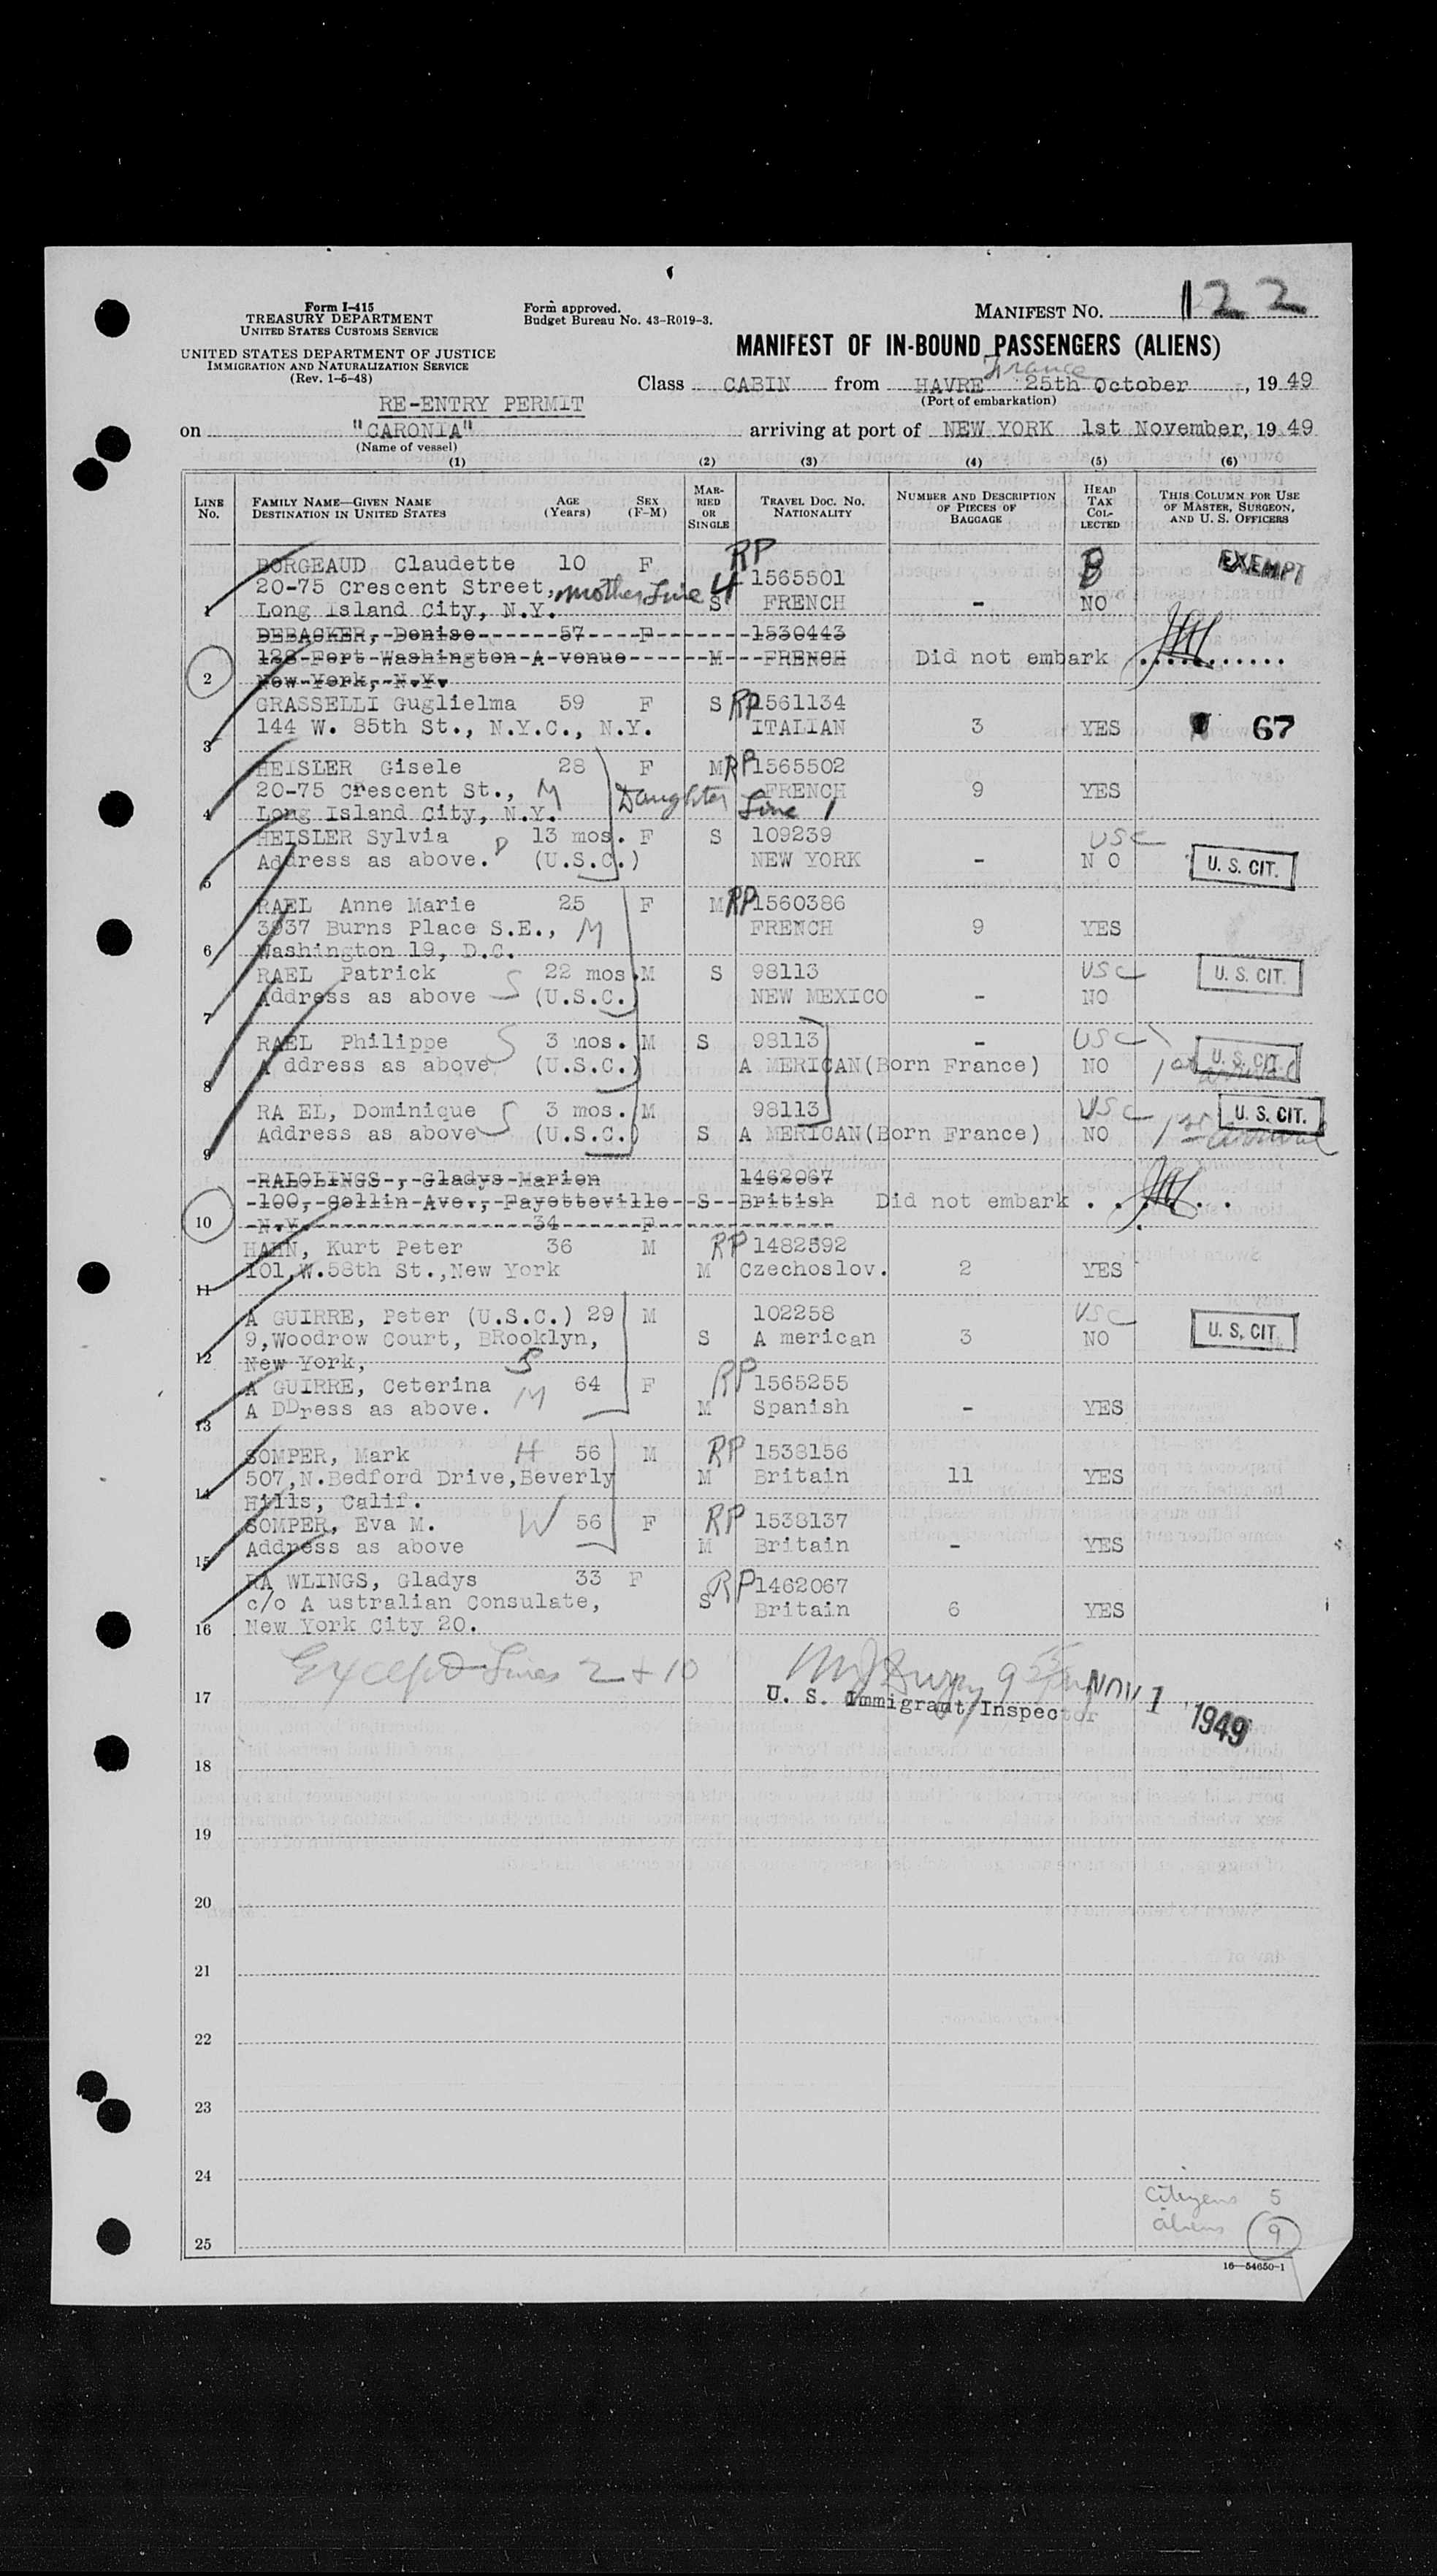 Form I-415
TREASURY DEPARTMENT
UNITED STATES CUSTOMS SERVICE
UNITED STATES DEPARTMENT OF JUSTICE
IMMIGRATION AND NATURALIZATION SERVICE
(Rev. 1-5-48)
Form approved.
Budget Bureau No. 43-R019-3.
MANIFEST NO. 122
MANIFEST OF IN-BOUND PASSENGERS (ALIENS)
France
Class CABIN from HAVRE 25th October, 19 49
(Port of embarkation)
RE-ENTRY PERMIT
on "CARONIA" arriving at port of NEW YORK 1st November, 19 49
(Name of vessel)
(1) (2) (3) (4) (5) (6)
LINE No. FAMILY NAME—GIVEN NAME DESTINATION IN UNITED STATES AGE (Years) SEX (F-M) MARRIED OR SINGLE TRAVEL DOC. NO. NATIONALITY NUMBER AND DESCRIPTION OF PIECES OF BAGGAGE HEAD TAX COLLECTED THIS COLUMN FOR USE OF MASTER, SURGEON, AND U. S. OFFICERS
BORGEAUD Claudette 10 F RP B EXEMPT
20-75 Crescent Street, mother Line 4 1565501
1 Long Island City, N.Y. S FRENCH - NO
DEBACKER, Denise 57 F 1530443
128 Fort Washington A venue M FRENCH Did not embark
2 New York, N.Y.
GRASSELLI Guglielma 59 F S RP 1561134
3 144 W. 85th St., N.Y.C., N.Y. ITALIAN 3 YES 67
HEISLER Gisele 28 F M RP 1565502
20-75 Crescent St., M Daughter FRENCH 9 YES
4 Long Island City, N.Y. Line 1
HEISLER Sylvia D 13 mos. F S 109239 USC
5 Address as above. (U.S.C.) NEW YORK - N O U. S. CIT.
RAEL Anne Marie 25 F M RP 1560386
3937 Burns Place S.E., M FRENCH 9 YES
6 Washington 19, D.C.
RAEL Patrick S 22 mos. M S 98113 USC U. S. CIT.
7 Address as above (U.S.C.) NEW MEXICO - NO
RAEL Philippe S 3 mos. M S 98113 - USC U. S. CIT.
8 A ddress as above (U.S.C.) A MERICAN(Born France) NO 1st arrival
RA EL, Dominique S 3 mos. M 98113 USC U. S. CIT.
9 Address as above (U.S.C.) S A MERICAN(Born France) NO 1st arrival
-RALOLINGS-,-Gladys-Marion 1462067
-100,-Collin-Ave.,-Fayetteville--S--British Did not embark . . . .
10 -N.Y. 34 F
HAHN, Kurt Peter 36 M RP 1482592
11 101,W.58th St.,New York M Czechoslov. 2 YES
A GUIRRE, Peter (U.S.C.) 29 M 102258 USC
9,Woodrow Court, BRooklyn, S A merican 3 NO U. S. CIT
12 New York, S
A GUIRRE, Ceterina M 64 F RP 1565255
13 A DDress as above. M Spanish - YES
SOMPER, Mark H 56 M RP 1538156
14 507,N.Bedford Drive,Beverly M Britain 11 YES
Hills, Calif.
SOMPER, Eva M. W 56 F RP 1538137
15 Address as above M Britain - YES
RA WLINGS, Gladys 33 F S RP 1462067
c/o A ustralian Consulate, Britain 6 YES
16 New York City 20.
Except Lines 2 + 10
17 U. S. Immigrant Inspector NOV 1 1949
18
19
20
21
22
23
24
Citizens 5
aliens 9
25
16—54650-1